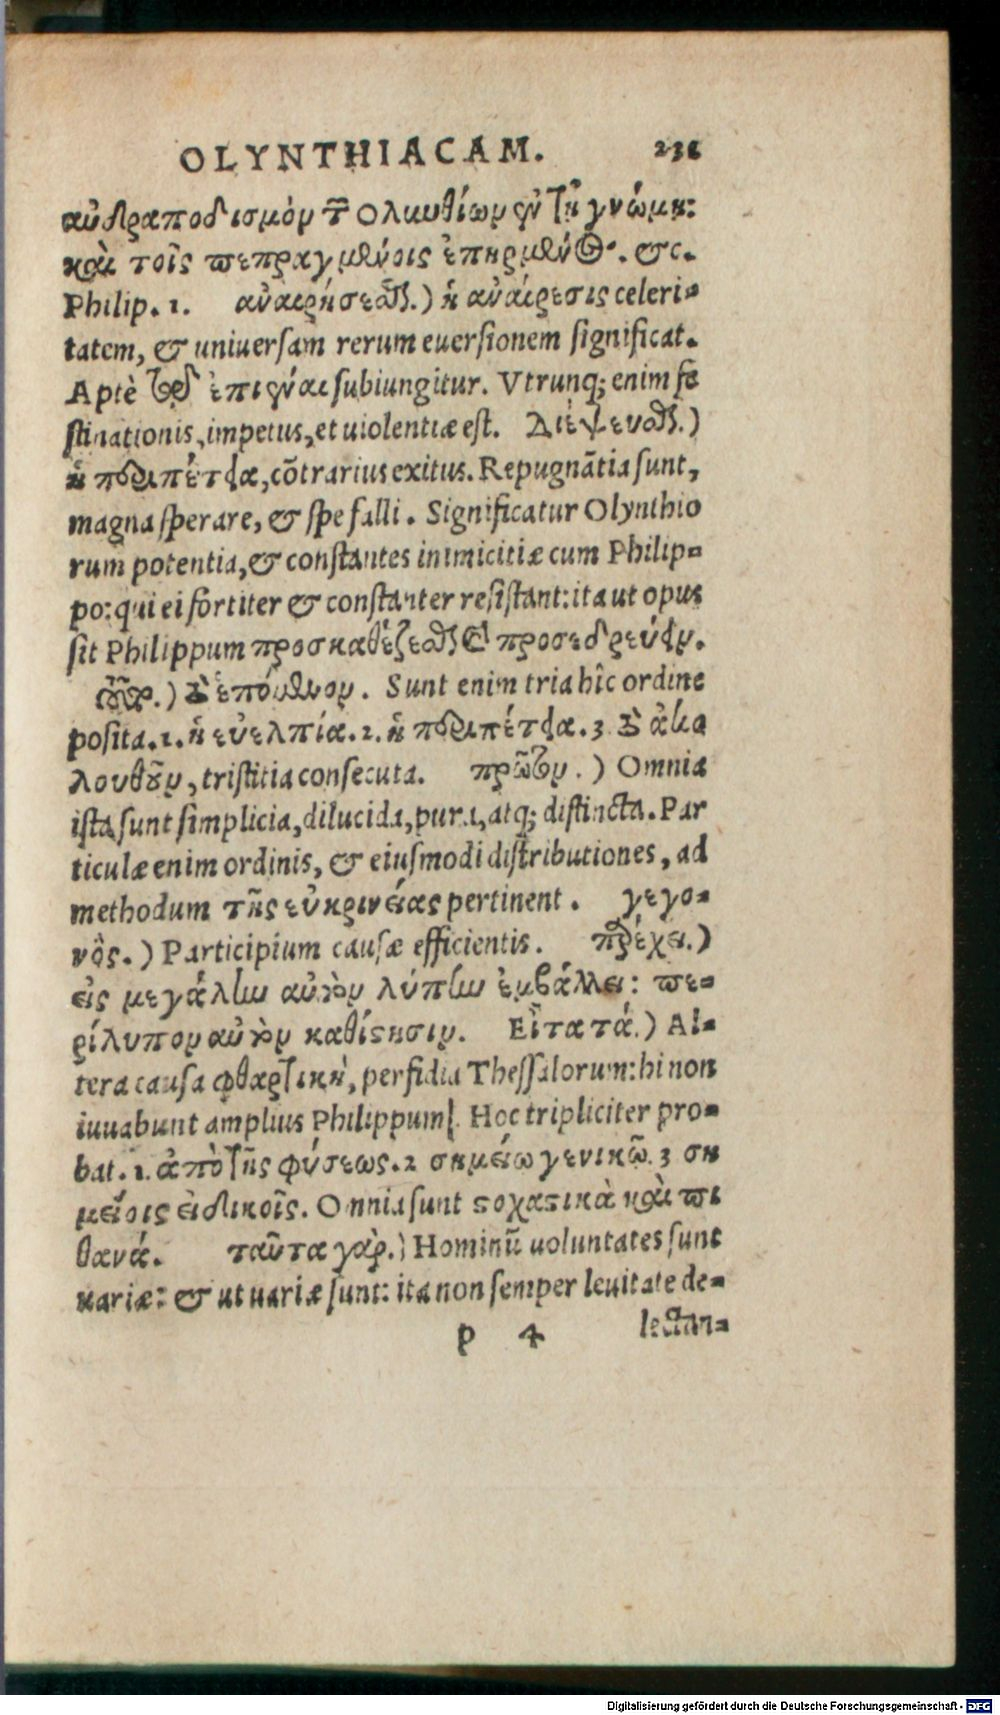 OLYNTHIACAM. 231
ἀνδραποδισμὸν τῶν Ολυνθίων ἐν τῇ γνώμῃ:
καὶ τοῖς πεπραγμένοις ἐπηρμένος. &c.
Philip. 1. ἀναιρήσεσθαι.) ἡ ἀναίρεσις celeri-
tatem, & uniuersam rerum euersionem significat.
Aptè τῷ δ' ἐπιέναι subiungitur. Vtrunq; enim fe
stinationis, impetus, et uiolentiæ est. Διέψευσθαι.)
ἡ περιπέτεια, cōtrarius exitus. Repugnātia sunt,
magna sperare, & spe falli. Significatur Olynthio
rum potentia, & constantes inimicitiæ cum Philip-
po: qui ei fortiter & constanter resistant: ita ut opus
sit Philippum προσκαθέζεσθαι καὶ προσεδρεύειν.
) τὸ ἑπόμενον. Sunt enim tria hîc ordine
posita. 1. ἡ εὐελπία. 2. ἡ περιπέτεια. 3 τὸ ἀκο
λουθοῦν, tristitia consecuta. πρῶτον.) Omnia
ista sunt simplicia, dilucida, pura, atq; distincta. Par
ticulæ enim ordinis, & eiusmodi distributiones, ad
methodum τῆς εὐκρινείας pertinent. γεγο-
νὸς.) Participium causæ efficientis. παρέχει.)
εἰς μεγάλην αὐτὸν λύπην ἐμβάλλει: πε-
ρίλυπον αὐτὸν καθίστησιν. Εἶτα τά.) Al-
tera causa φθαρτικὴ, perfidia Thessalorum: hi non
iuuabunt amplius Philippum. Hoc tripliciter pro-
bat. 1. ἀπὸ τῆς φύσεως. 2 σημείῳ γενικῷ. 3 ση
μείοις εἰδικοῖς. Omnia sunt στοχαστικὰ καὶ πι
θανά. ταῦτα γὰρ.) Hominū uoluntates sunt
uariæ: & ut uariæ sunt: ita non semper leuitate de-
p 4 lectan-
Digitalisierung gefördert durch die Deutsche Forschungsgemeinschaft - DFG